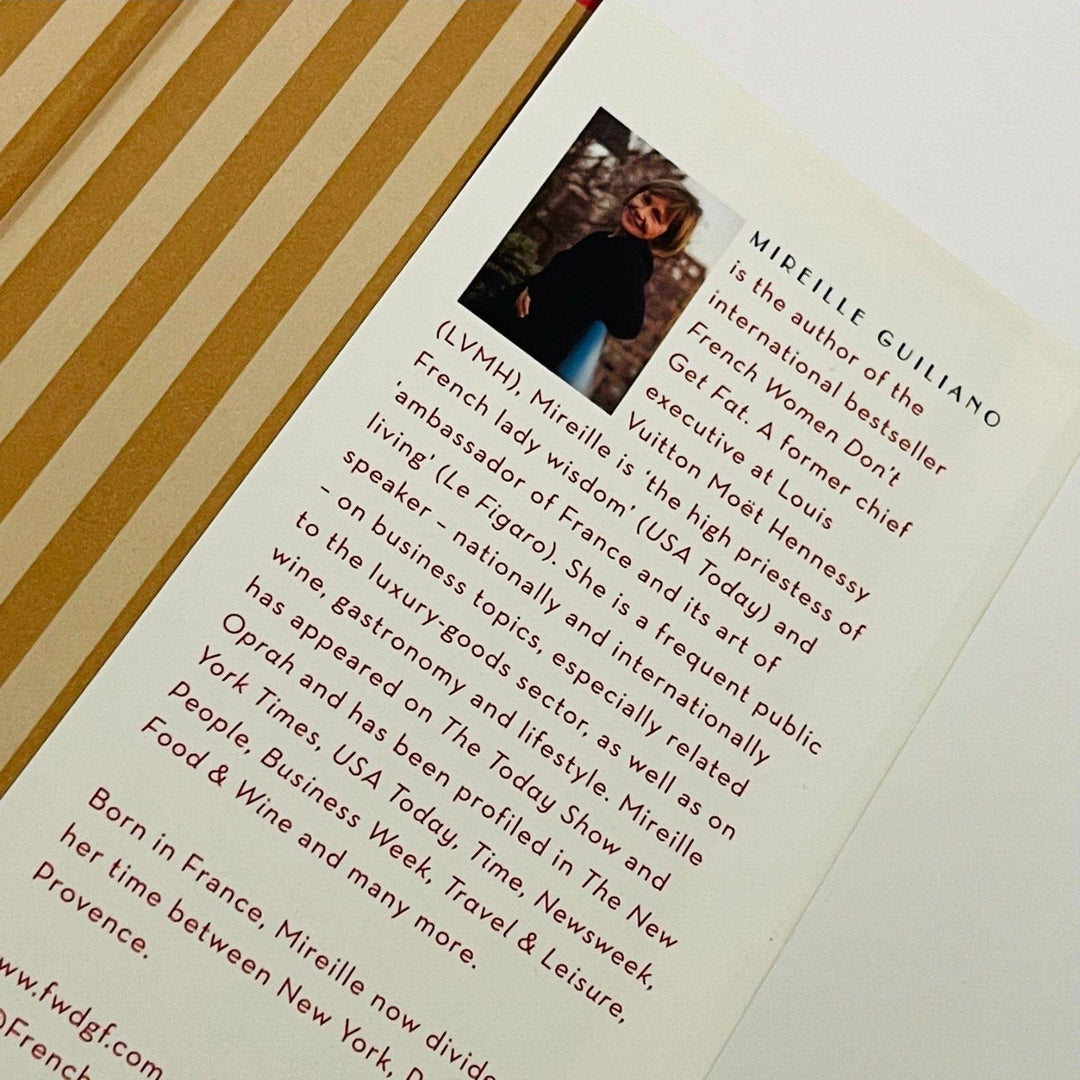 MIREILLE GUILIANO
is the author of the
international bestseller
French Women Don't
Get Fat. A former chief
executive at Louis
Vuitton Moët Hennessy
(LVMH), Mireille is 'the high priestess of
French lady wisdom' (USA Today) and
'ambassador of France and its art of
living' (Le Figaro). She is a frequent public
speaker – nationally and internationally
– on business topics, especially related
to the luxury-goods sector, as well as on
wine, gastronomy and lifestyle. Mireille
has appeared on The Today Show and
Oprah and has been profiled in The New
York Times, USA Today, Time, Newsweek,
People, Business Week, Travel & Leisure,
Food & Wine and many more.
Born in France, Mireille now divides
her time between New York,
Provence.
www.fwdgf.com